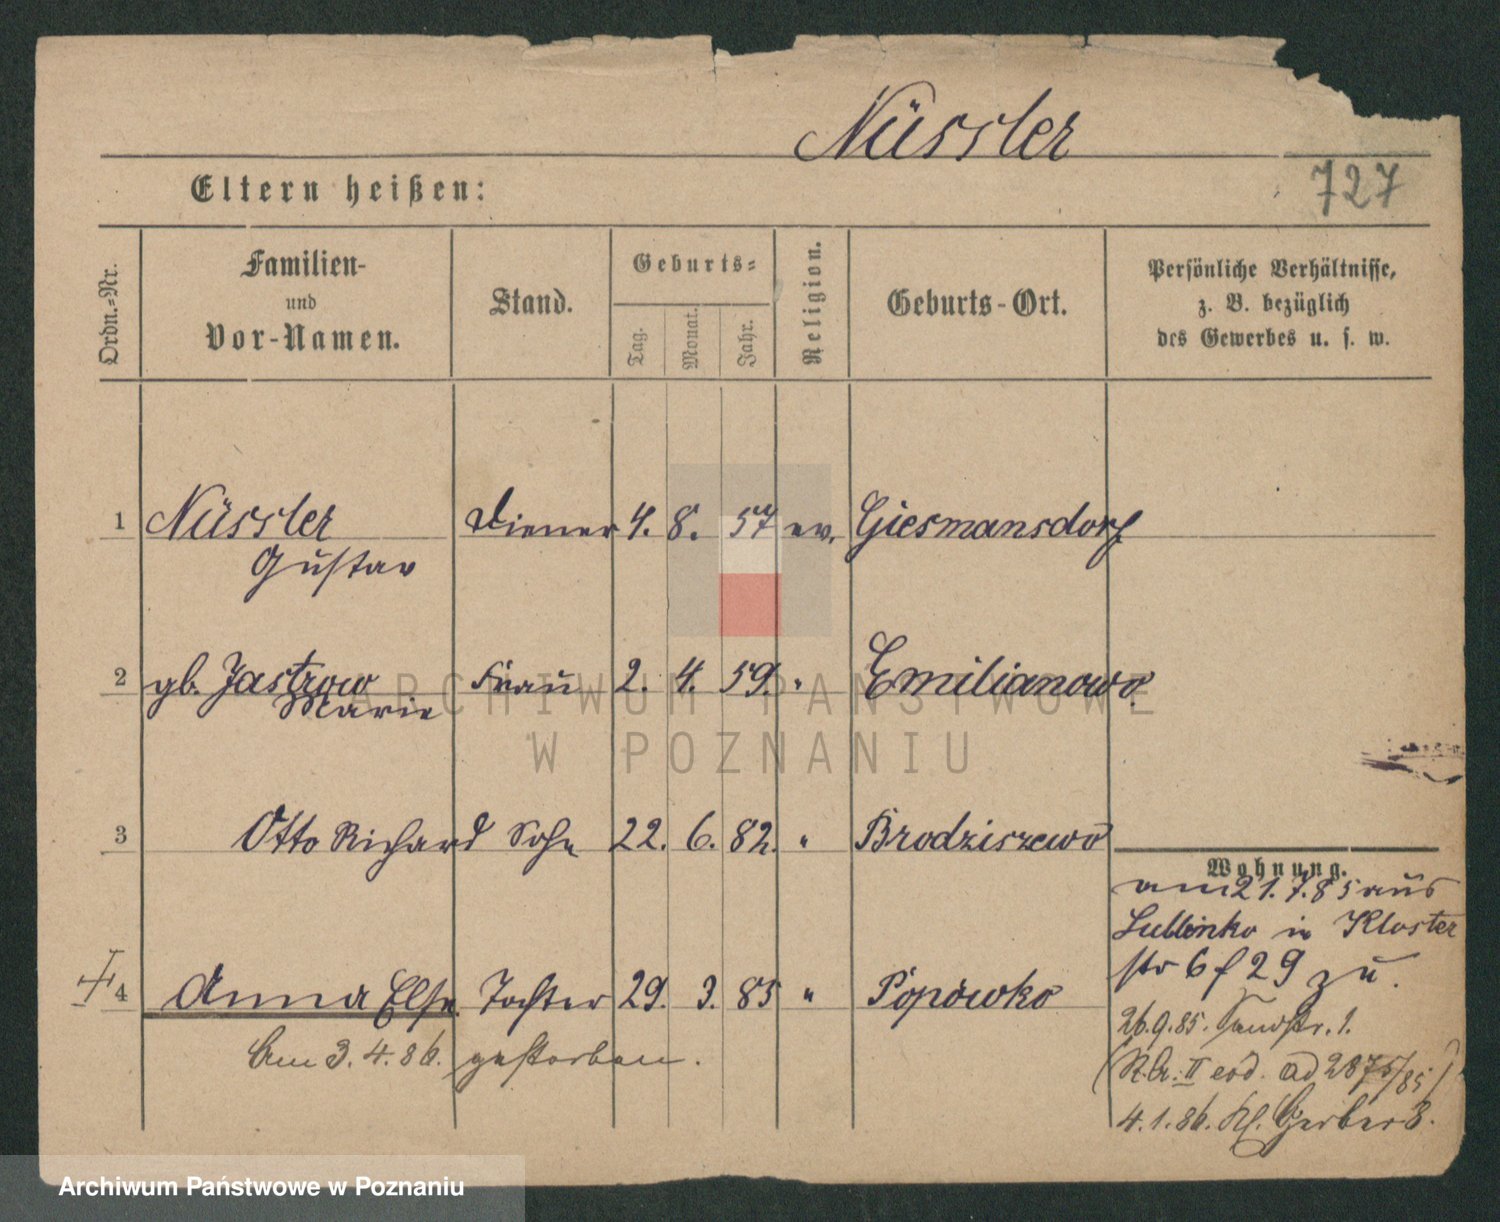 Nüssler
727
Eltern heißen:
Ordn.-Nr.
Familien-
und
Vor-Namen.
Stand.
Geburts-
Tag.
Monat.
Jahr.
Religion.
Geburts-Ort.
Persönliche Verhältnisse,
z. B. bezüglich
des Gewerbes u. s. w.
1 Nüssler Diener 4. 8. 57 ev. Giesmansdorf
Gustav
2 gb. Jastrow Frau 2. 4. 59. " Emilianowo
Marie
3 Otto Richard Sohn 22. 6. 82. " Brodziszewo
Wohnung.
am 21.7.85 aus
Lublinko in Kloster
str 6 f 29 zu.
4 Anna Else Tochter 29. 3. 85 " Popówko
Am 3.4.86. gestorben.
26.9.85. Sandstr. 1.
II eod. ad 2875/85)
4.1.86. Kl. Gerber 8.
ARCHIWUM PAŃSTWOWE
W POZNANIU
Archiwum Państwowe w Poznaniu